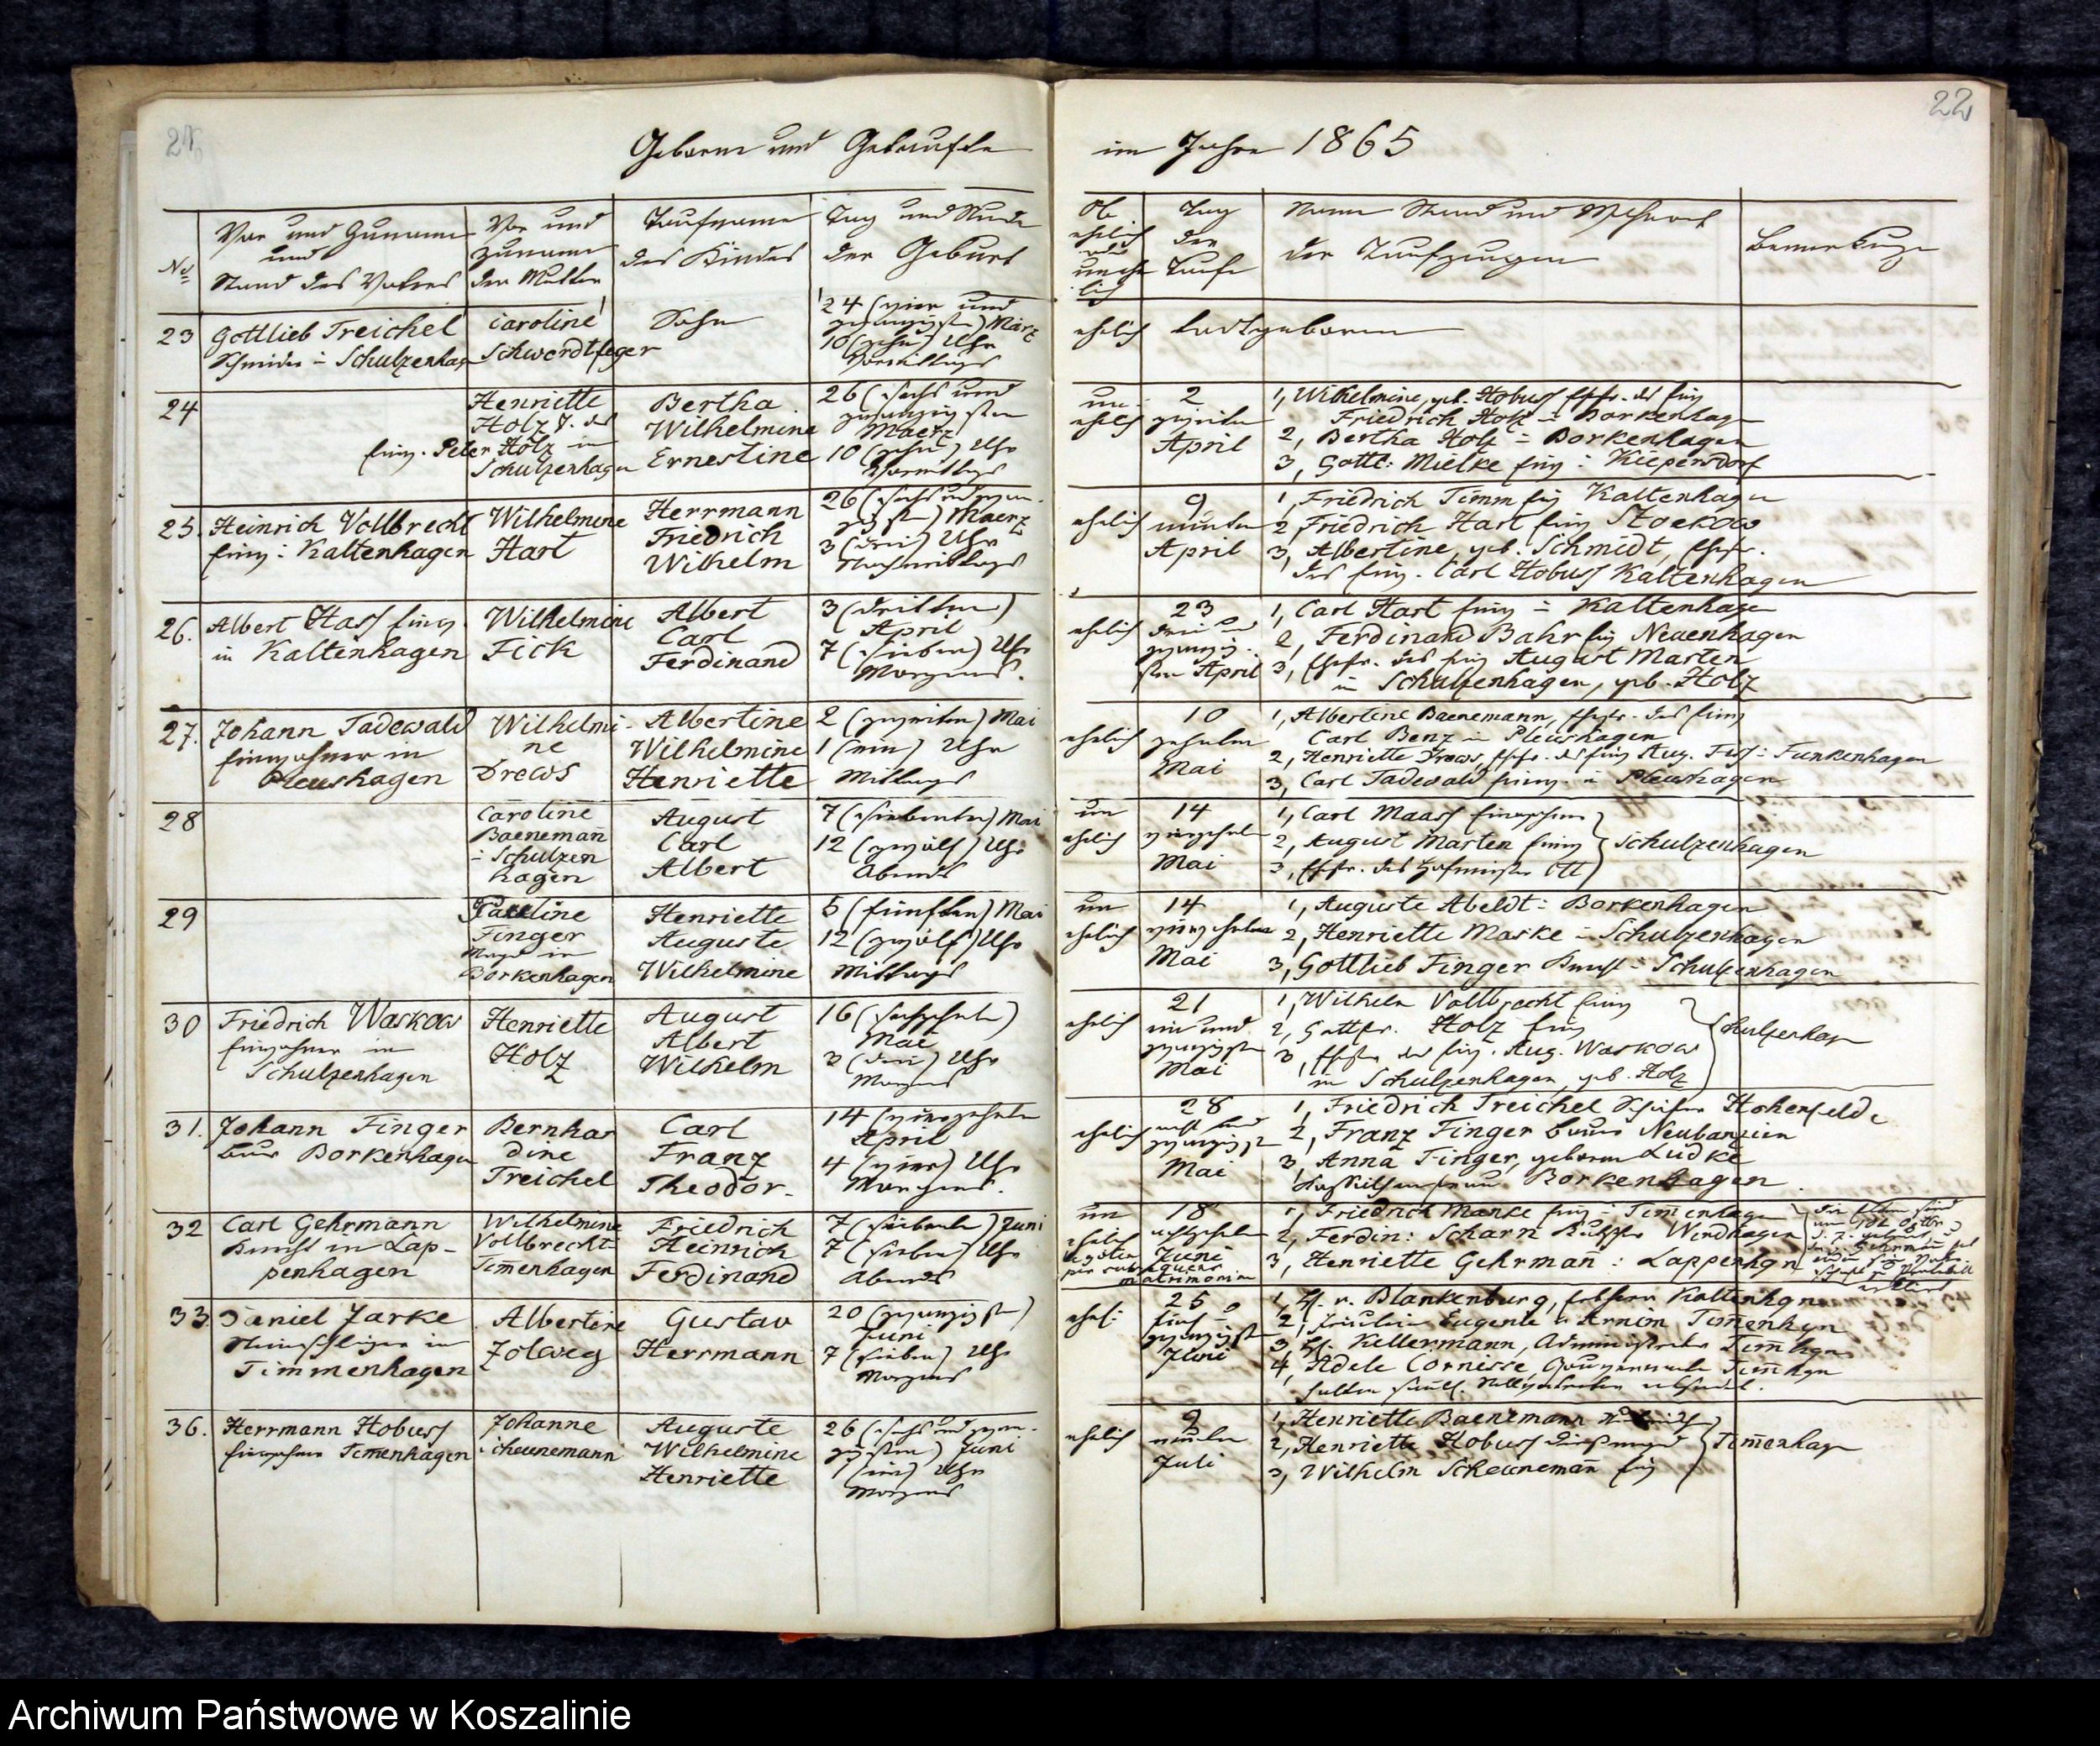 22
Geborne und Getaufte
im Jahre 1865
No
Vor und Zuname
und
Stand des Vaters
Vor und
Zuname
der Mutter
Taufname
des Kindes
Tag und Stunde
der Geburt
Ob
ehelich
oder
unehe
lich
Tag
der
Taufe
Name Stand und Wohnort
der Taufzeugen
Bemerkunge
23
Gottlieb Treichel
Schneider in Schulzenhag
Caroline
Schwerdtfeger
Sohn
24 (vier und
zwanzigsten) März
10 (zehn) Uhr
Vormittags
ehelich
todtgeboren
24
Henriette
Holz T. des
Einw. Peter Holz in
Schulzenhagen
Bertha
Wilhelmine
Ernestine
26 (sechs und
zwanzigsten
Maerz
10 (zehn) Uhr
Vormittags
un
ehelich
2
zweiten
April
1, Wilhelmine, geb. Hobuss Ehefr. des Einw
Friedrich Holz in Borkenhage
2, Bertha Holz in Borkenhagen
3, Gottl: Mielke Einw in Kiepersdorf
25.
Heinrich Vollbrecht
Einw in Kaltenhagen
Wilhelmine
Hart
Herrmann
Friedrich
Wilhelm
26 (sechs und zwan-
zigsten) Maerz
3 (drei) Uhr
Nachmittags
ehelich
9
neunten
April
1, Friedrich Timm Einw Kaltenhagen
2 Friedrich Hart Einw Stoekow
3, Albertine, geb. Schmidt, Ehefr.
des Einw. Carl Hobuss Kaltenhagen
26.
Albert Hass Einw
in Kaltenhagen
Wilhelmine
Fick
Albert
Carl
Ferdinand
3 (dritten)
April
7 (sieben) Uhr
Morgens.
ehelich
23
drei und
zwanzig-
sten April
1, Carl Hart Einw in Kaltenhage
2, Ferdinand Bahr Einw Neuenhagen
3, Ehefr. des Einw August Marten
in Schulzenhagen, geb. Holz
27.
Johann Tadewald
Einwohner in
Pleushagen
Wilhelmi-
ne
Drews
Albertine
Wilhelmine
Henriette
2 (zweiten) Mai
1 (ein) Uhr
Mittags
ehelich
10
zehnten
Mai
1, Albertine Baenemann, Ehefr. des Einw
Carl Benz in Pleushagen
2, Henriette Drews, Ehefr. des Einw Aug. Fass in Funkenhagen
3, Carl Tadewald Einw in Pleushagen
28
Caroline
Baenemañ
in Schulzen
hagen
August
Carl
Albert
7 (siebenten) Mai
12 (zwölf) Uhr
Abends
un
ehelich
14
vierzehnten
Mai
1, Carl Maass Einwohner
2, August Marten Einw
3, Ehefr. des Hofmeister Ott
Schulzenhagen
29
Pauline
Finger
Magd in
Borkenhagen
Henriette
Auguste
Wilhelmine
5 (fünften) Mai
12 (zwölf) Uhr
Mittags
un
ehelich
14
vierzehnten
Mai
1, Auguste Abeldt in Borkenhagen
2, Henriette Maske in Schulzenhagen
3, Gottlieb Finger Knecht in Schulzenhagen
30
Friedrich Waskow
Einwohner in
Schulzenhagen
Henriette
Holz
August
Albert
Wilhelm
16 (sechzehnten)
Mai
3 (drei) Uhr
Morgens
ehelich
21
ein und
zwanzigsten
Mai
1, Wilhelm Vollbrecht Einw
2, Gottfr. Holz Einw
3, Ehefr. des Einw. Aug. Waskow
in Schulzenhagen, geb. Holz
Schulzenhage
31.
Johann Finger
Bauer Borkenhagen
Bernhar
dine
Treichel
Carl
Franz
Theodor.
14 (vierzehnten
April
4 (vier) Uhr
Morgens.
ehelich
28
acht und
zwanzigst
Mai
1, Friedrich Treichel Schäfer Hohenfelde
2, Franz Finger Bauer Neubanzien
3, Anna Finger, geboren Lüdke
Borkenhagen
32
Carl Gehrmann
Knecht in Lap-
penhagen
Wilhelmine
Vollbrecht
Tim̄enhagen
Friedrich
Heinrich
Ferdinand
7 (siebenten) Juni
7 (sieben) Uhr
Abends
un
ehelich
per subsequens
matrimonium
18
achtzehnten
Juni
1, Friedrich Manke Einw in Timmenhagen
2, Ferdin: Scharn Kutscher Wendhagen
3, Henriette Gehrman̄ : Lappenhgn
33.
Daniel Zarke
Steinschläger in
Timmenhagen
Albertine
Zolweg
Gustav
Herrmann
20 (zwanzigsten)
Juni
7 (sieben) Uhr
Morgens
ehel:
25
fünf
zwanzigst
Juni
1, H. v. Blankenburg, Erbherr Kaltenhgn
2, Fräulein Eugenie v Arnim Tim̄enhgn
3, H. Kellermann, Administrator Tim̄hgn
4, Adele Cornisse, Gouvernante Tim̄hgn
36.
Herrmann Hobuss
Einwohner Tim̄enhagen
Johanne
Scheunemann
Auguste
Wilhelmine
Henriette
26 (sechs und zwan-
zigsten) Juni
1 (ein) Uhr
Morgens
ehelich
9
neunten
Juli
1, Henriette Baenemann
2, Henriette Hobuss Dienstmagd
3, Wilhelm Scheuneman̄ Einw
Tim̄enhage
Archiwum Państwowe w Koszalinie